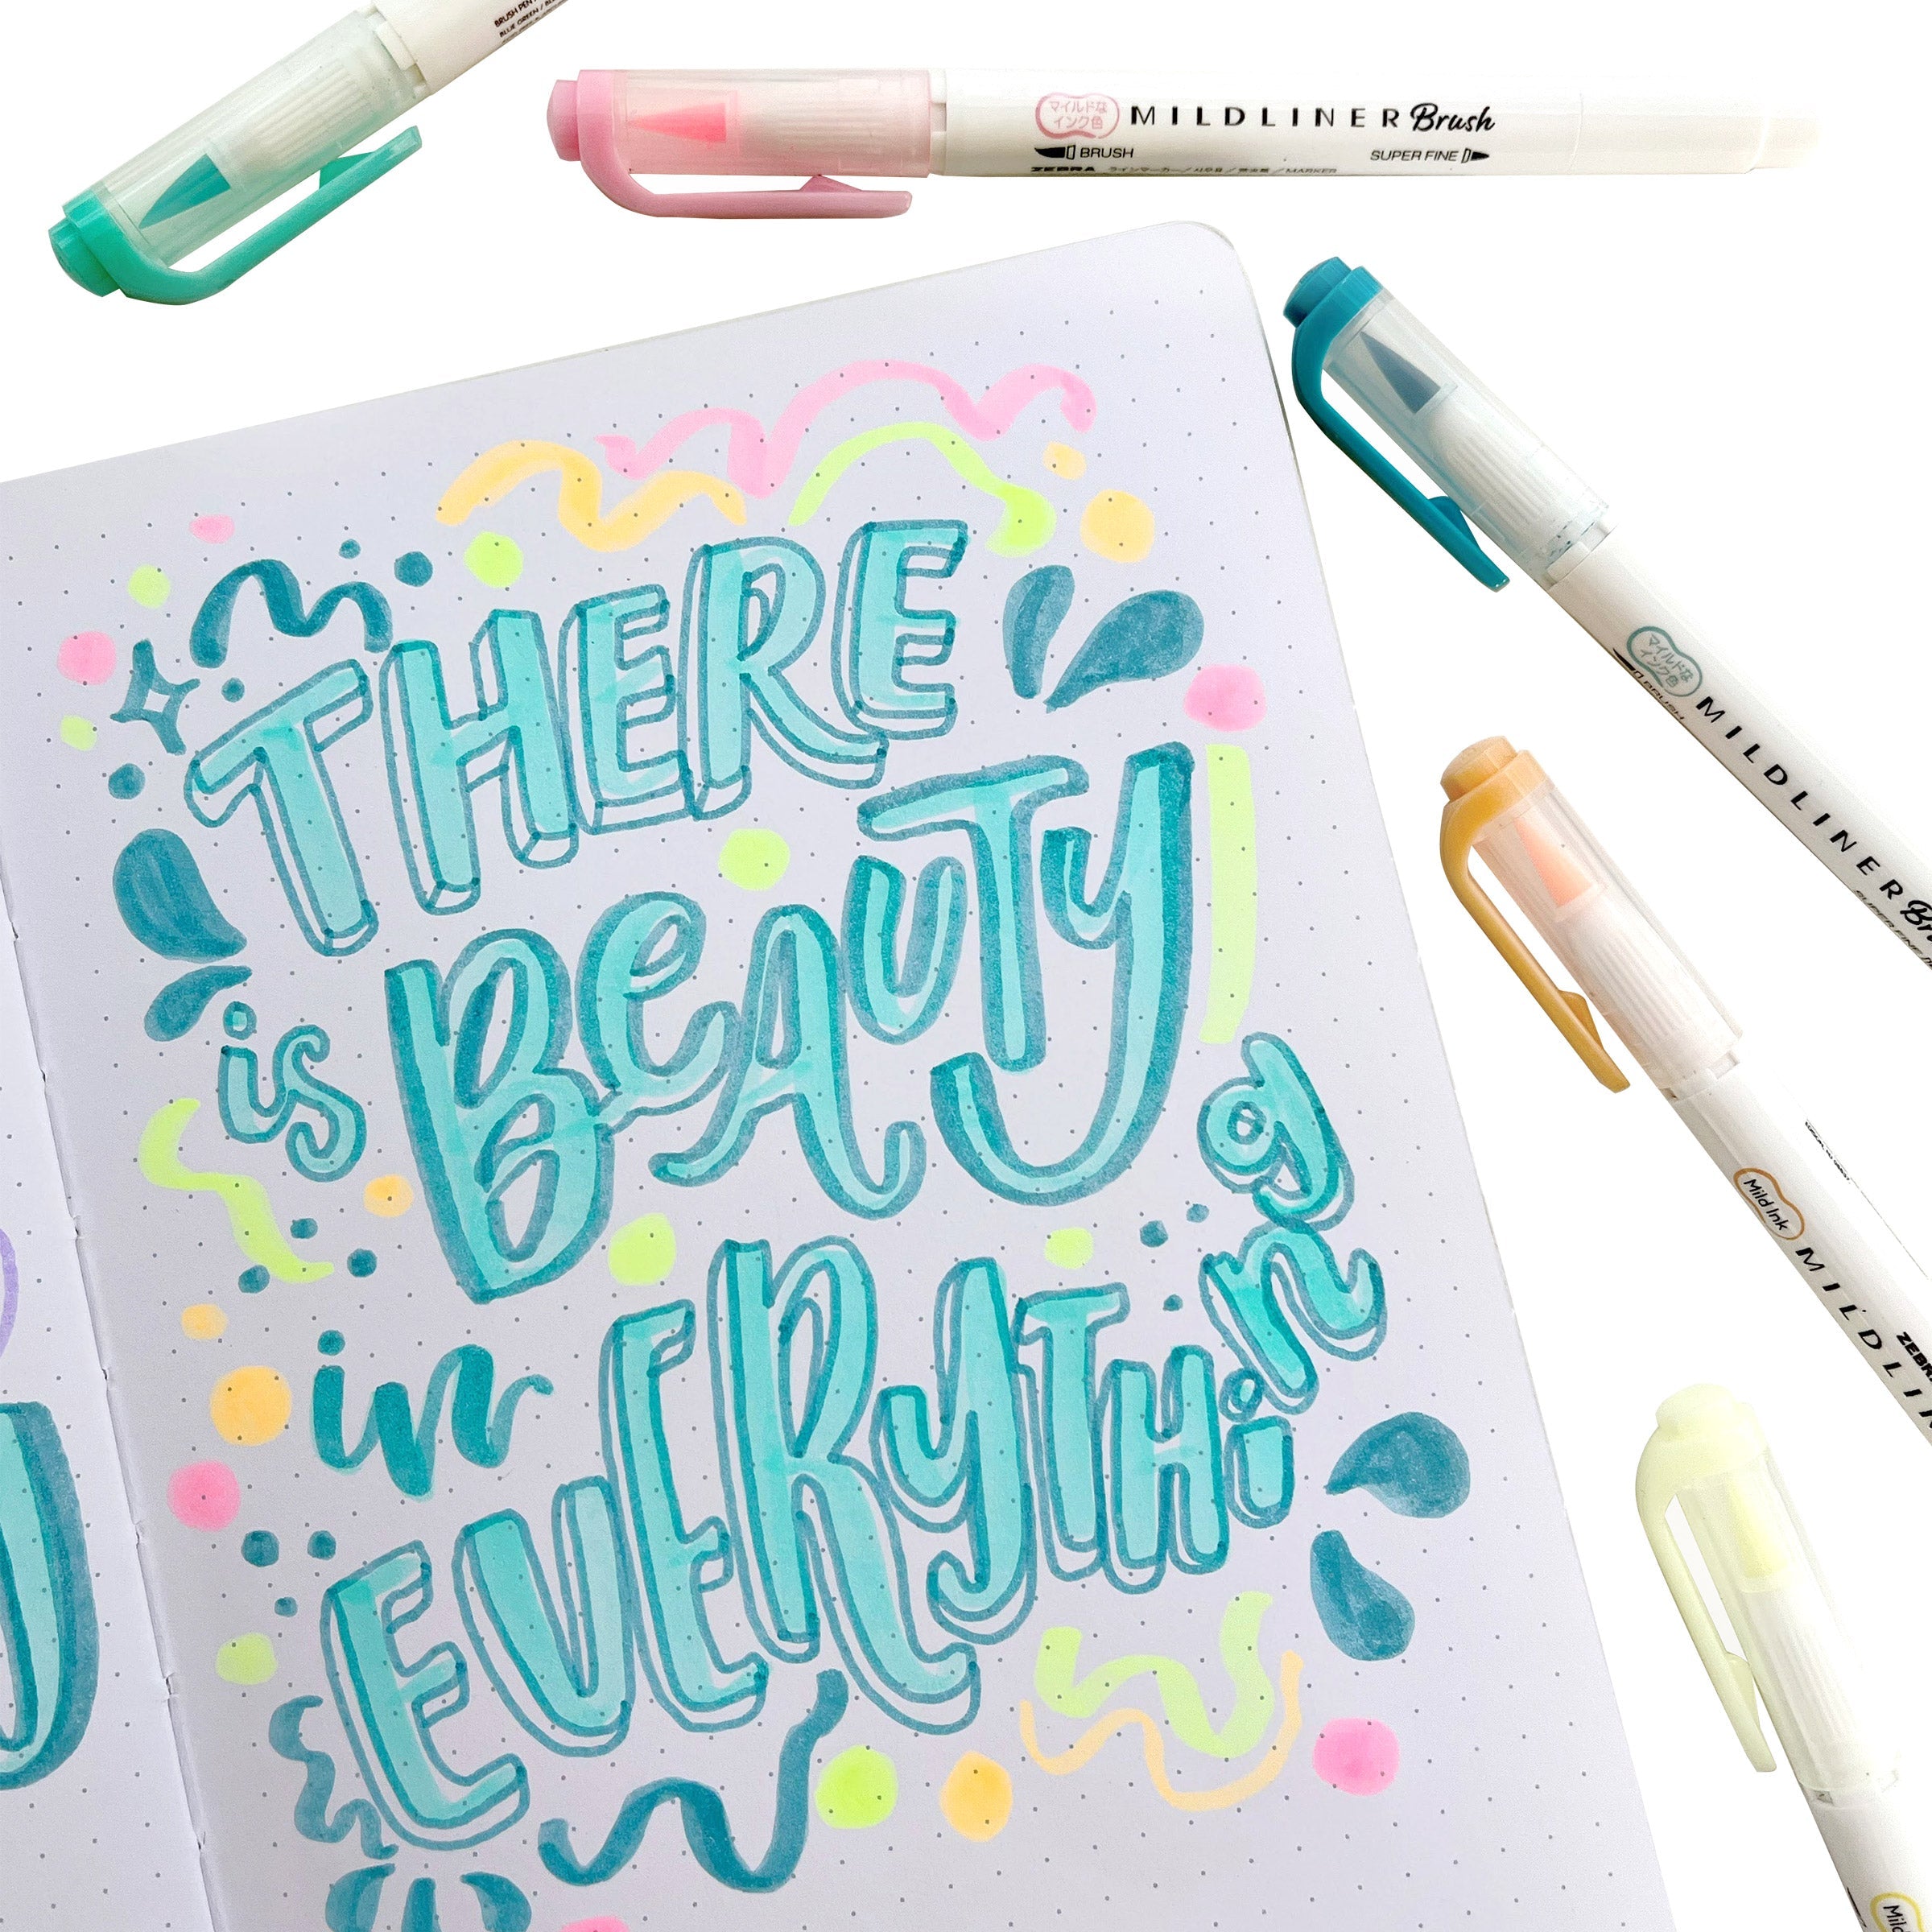 BRUSH PEN
BLUE GREEN /
マイルドな
インク色
MILDLINER Brush
BRUSH
SUPER FINE
ZEBRA ラインマーカー / 사인용 / 荧光笔 / MARKER
マイルドな
インク色
MILDLINER
BRUSH
SUPER FINE
Mild Ink
MILDLI
ZEBR
THERE
is BEAUTY
in
EVERYTHING